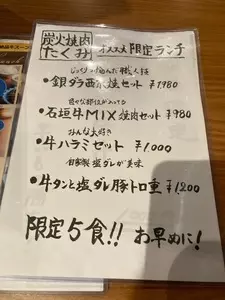 炭火焼肉
たくみ
オススメ 限定ランチ
じっくり漬込んだ職人技
・銀ダラ西京焼セット ¥1,980
色々な部位が入ってる
・石垣牛MIX焼肉セット ¥980
みんな大好き
・牛ハラミセット ¥1,000
自家製塩ダレが美味
・牛タンと塩ダレ豚トロ重 ¥1,200
限定5食!! お早めに!